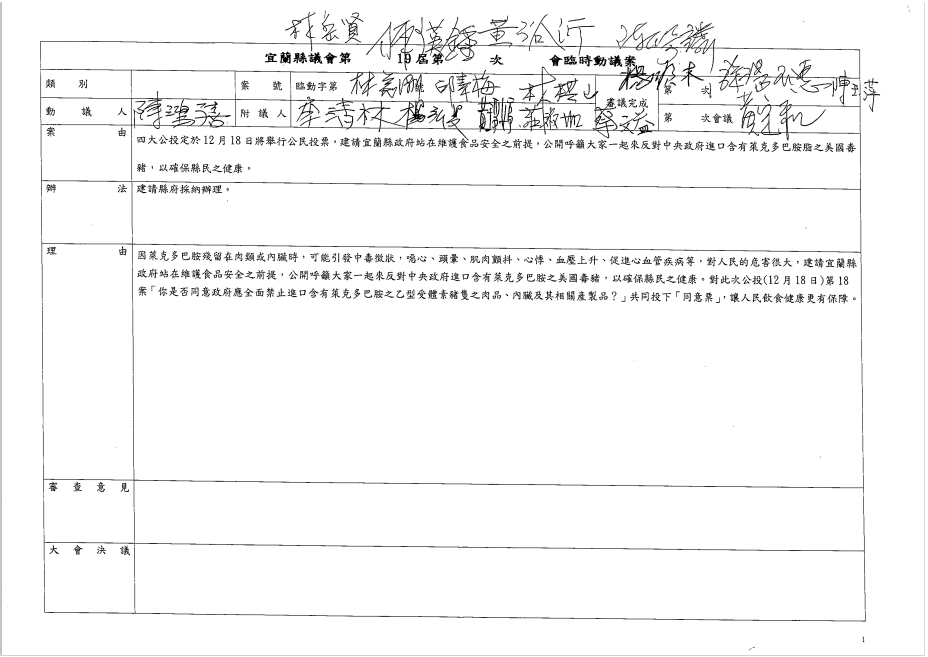 林岳賢
宜蘭縣議會第 19屆第 次 會臨時動議案
類別 案號 臨動字第 第 次
動議人 陳鴻禧 附議人 李清林 審議完成 第 次會議
案由 四大公投定於12月18日將舉行公民投票，建請宜蘭縣政府站在維護食品安全之前提，公開呼籲大家一起來反對中央政府進口含有萊克多巴胺脂之美國毒
豬，以確保縣民之健康。
辦法 建請縣府採納辦理。
理由 因萊克多巴胺殘留在肉類或內臟時，可能引發中毒徵狀，噁心、頭暈、肌肉顫抖、心悸、血壓上升、促進心血管疾病等，對人民的危害很大，建請宜蘭縣
政府站在維護食品安全之前提，公開呼籲大家一起來反對中央政府進口含有萊克多巴胺之美國毒豬，以確保縣民之健康。對此次公投(12月18日)第18
案「你是否同意政府應全面禁止進口含有萊克多巴胺之乙型受體素豬隻之肉品、內臟及其相關產製品？」共同投下「同意票」，讓人民飲食健康更有保障。
審查意見
大會決議
1